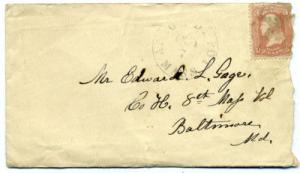 Mr Edward L. Gage.
Co H. 8th Mass Vol
Baltimore
Md.